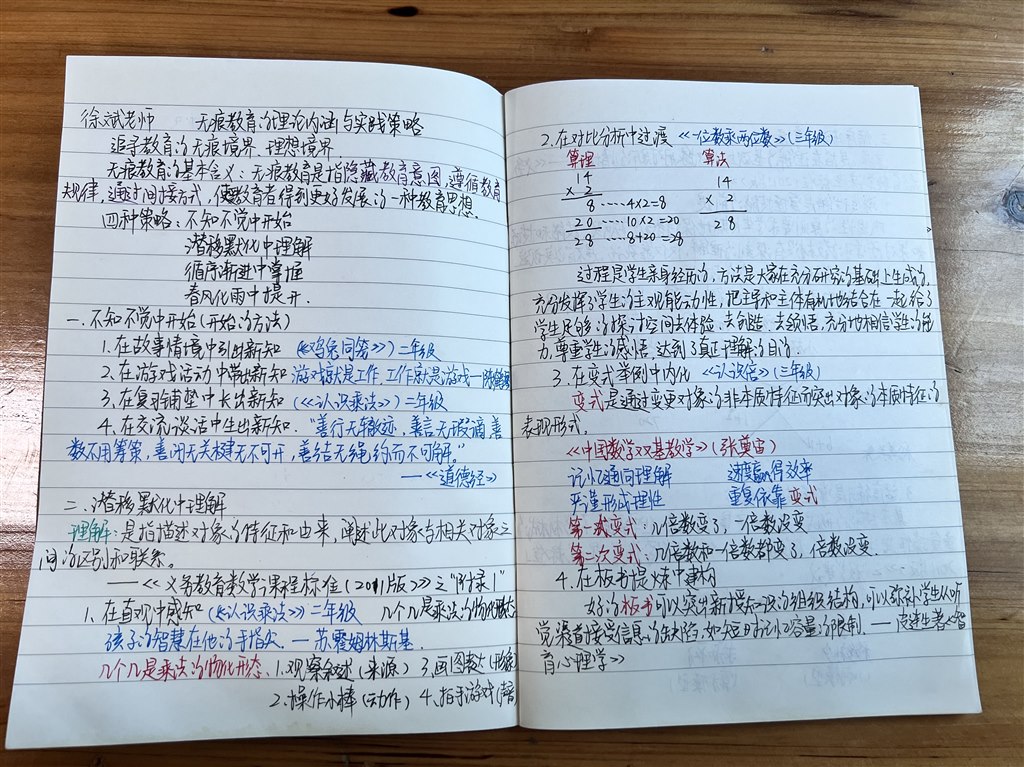 徐斌老师 无痕教育的理论内涵与实践策略
追寻教育的无痕境界、理想境界
无痕教育的基本含义：无痕教育是指隐藏教育意图，遵循教育
规律，通过间接方式，使教育者得到更好发展的一种教育思想.
四种策略：不知不觉中开始
潜移默化中理解
循序渐进中掌握
春风化雨中提升.
一.不知不觉中开始（开始的方法）
1.在故事情境中引出新知（《鸡兔同笼》）二年级
2.在游戏活动中带出新知 游戏就是工作，工作就是游戏—陈鹤琴
3.在复习铺垫中长出新知（《认识乘法》）二年级
4.在交流谈话中生出新知.“善行无辙迹，善言无瑕谪，善
数不用筹策，善闭无关楗无不可开，善结无绳约而不可解。”
——《道德经》
二.潜移默化中理解
理解：是指描述对象的特征和由来，阐述此对象与相关对象之
间的区别和联系。
——《义务教育数学课程标准（2011版）》之“附录1”
1.在直观中感知（《认识乘法》）二年级 几个几是乘法的物化形态
孩子的智慧在他的手指尖.—苏霍姆林斯基.
几个几是乘法的物化形态.1.观察叙述（来源）3.画图表达（形象
2.操作小棒（动作）4.拍手游戏（声音
2.在对比分析中过渡 《一位数乘两位数》（三年级）
算理 算法
14 14
× 2 × 2
8 ····4×2=8 28
20 ····10×2=20
28 ····8+20=28
过程是学生亲身经历的，方法是大家在充分研究的基础上生成的，
充分发挥了学生的主观能动性，把主导和主体有机地结合在一起，给了
学生足够的探讨空间去体验、去创造、去领悟，充分地相信学生的能
力，尊重学生的感悟，达到了真正理解的目的.
3.在变式举例中内化 《认识倍》（三年级）
变式是通过变更对象的非本质特征而突出对象的本质特征的
表现形式.
《中国数学双基教学》（张奠宙）
记忆通向理解 速度赢得效率
严谨形成理性 重复依靠变式
第一次变式：几倍数变了，一倍数没变
第二次变式：几倍数和一倍数都变了，倍数没变.
4.在板书提炼中建构
好的板书可以突出新授知识的组织结构，可以弥补学生从听
觉渠道接受信息的缺陷，如短时记忆容量的限制.—皮连生者《智
育心理学》